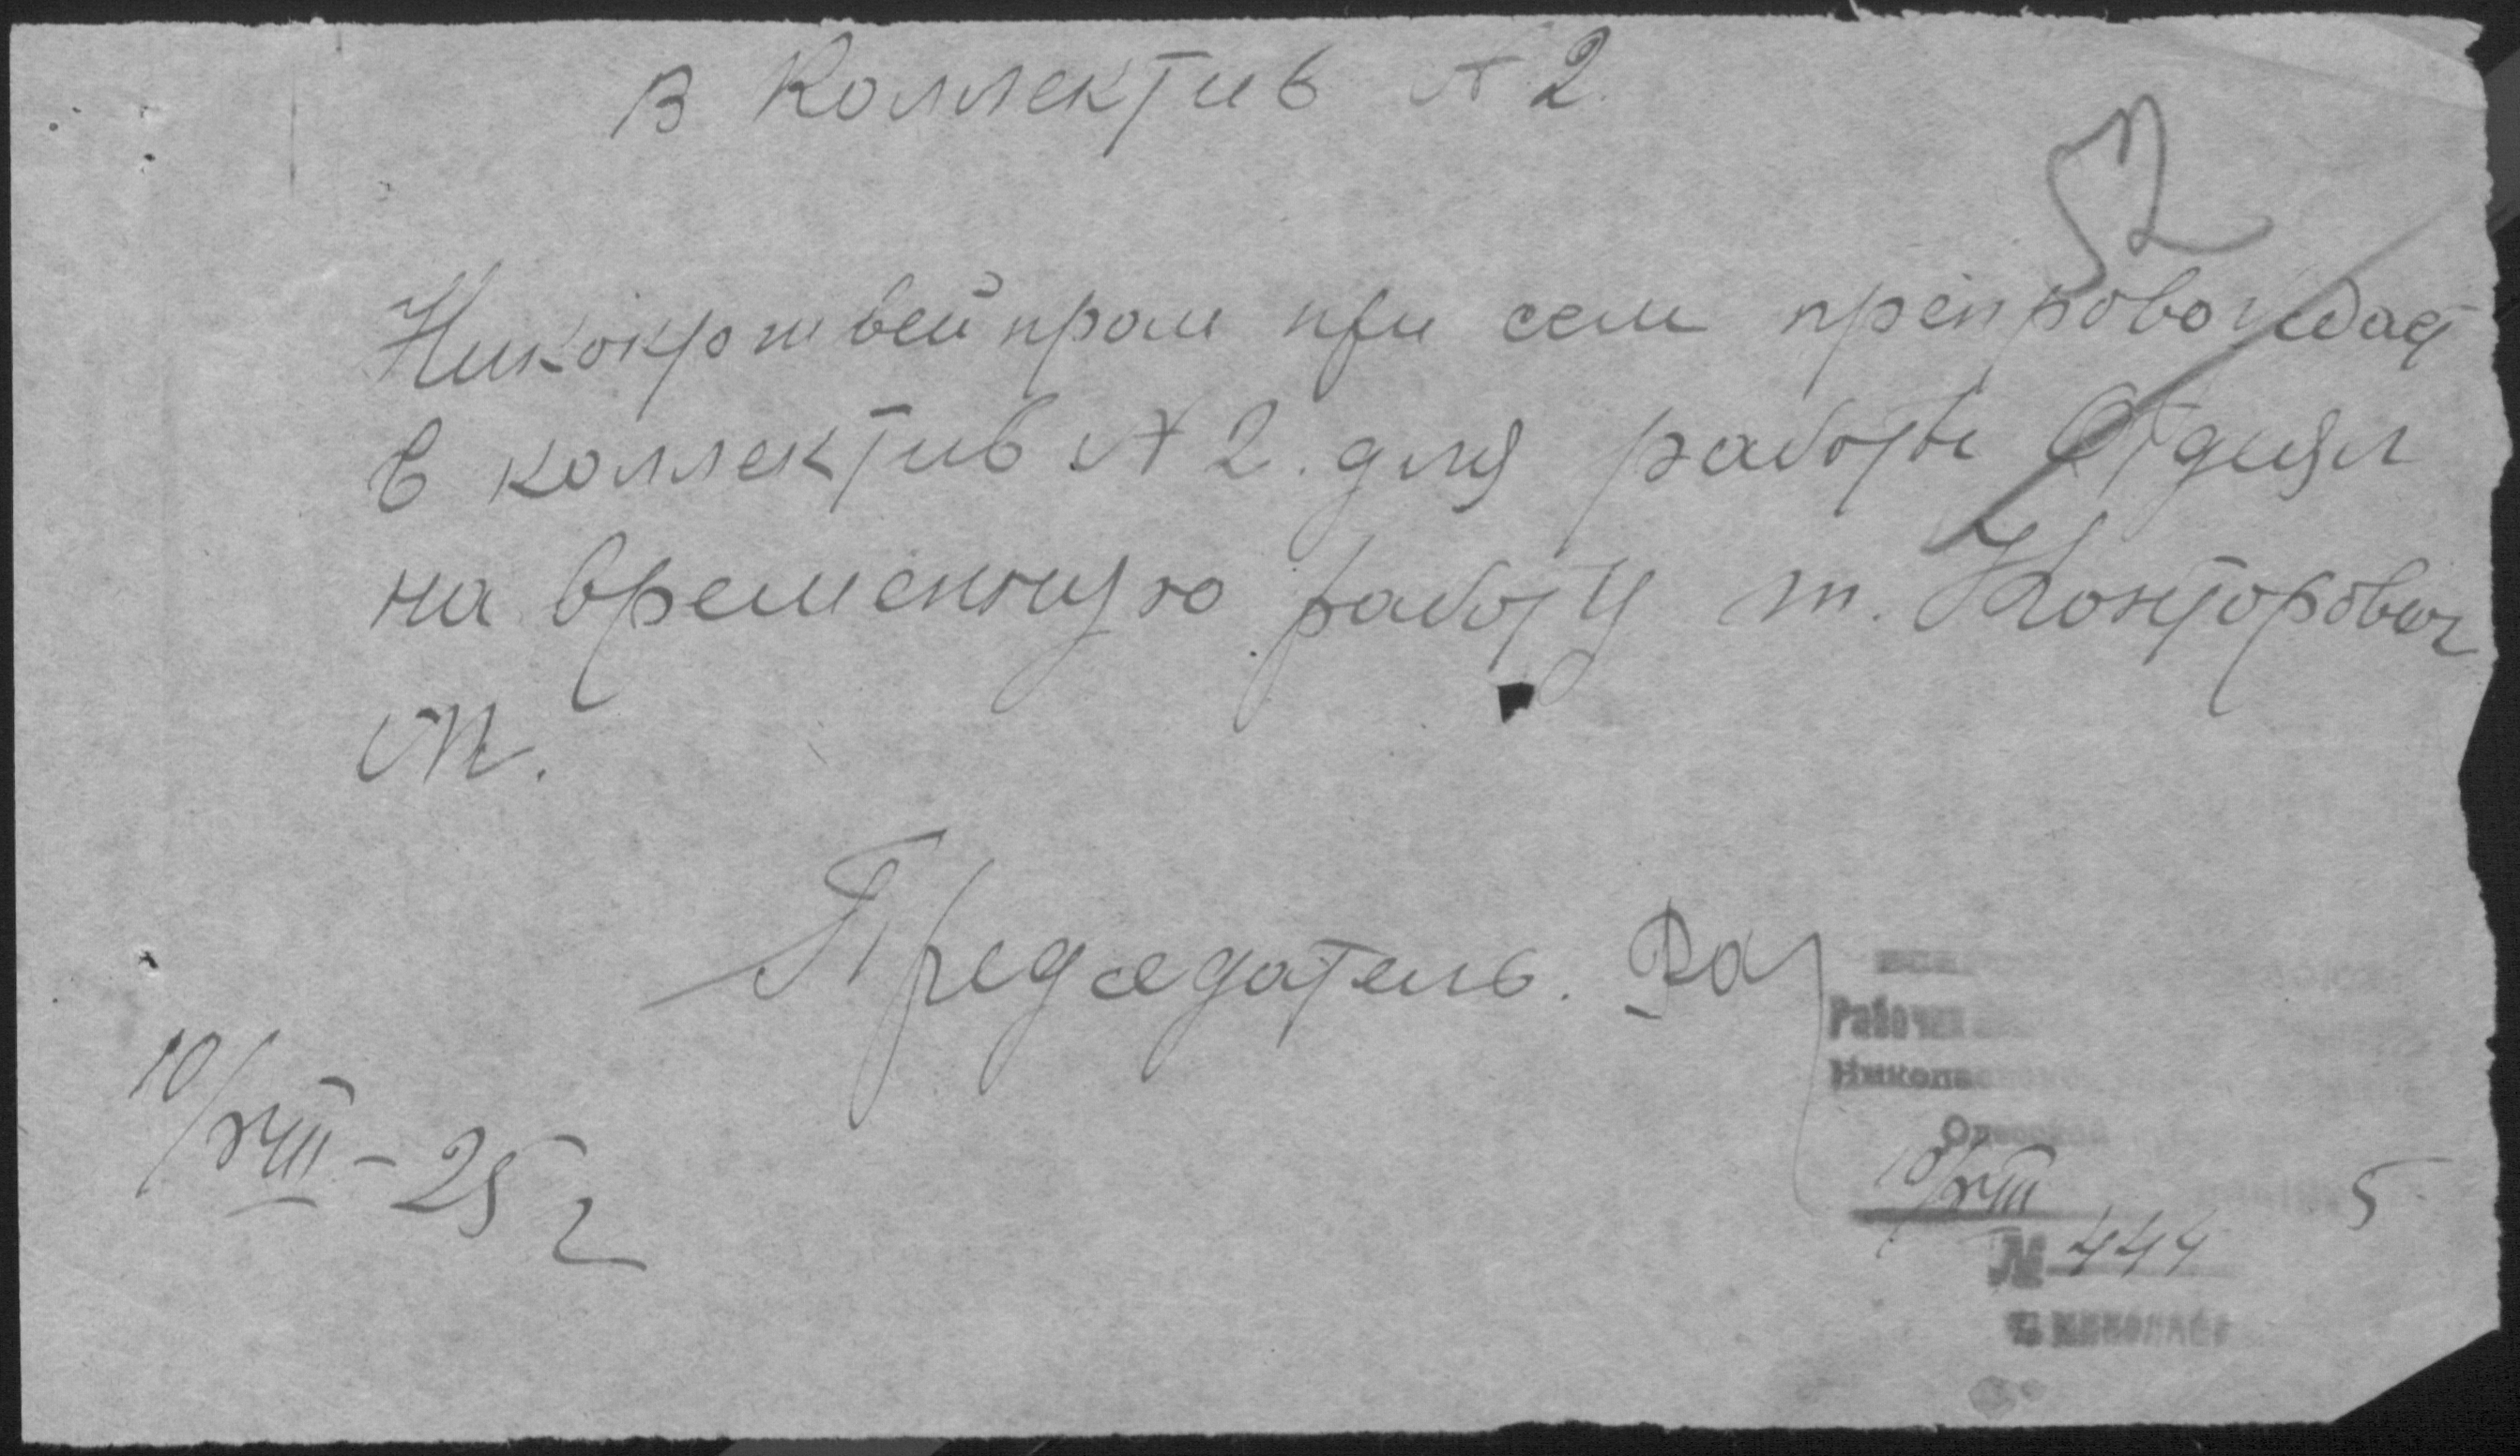 В Коллектив № 2.
52
Никокршвейпром при сем препровождает
в коллектив № 2. для работы
на временную работу т. Конторович
М.
Председатель.
10/VIII-25 г
Рабочих
Никола
10/VIII 5
№ 444
г. Николаев